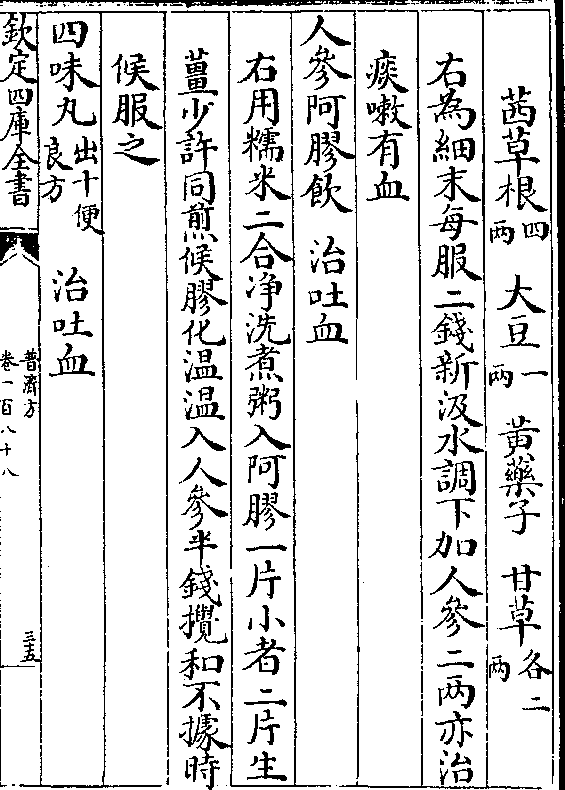 茜草根四兩 大豆一兩 黄藥子 甘草各二兩
右為細末每服二錢新汲水調下加人參二两亦治
痰嗽有血
人參阿膠飲 治吐血
右用糯米二合净洗煮粥入阿膠一片小者二片生
薑少許同煎候膠化温温入人參半錢攪和不據時
候服之
四味丸出十便良方 治吐血
欽定四庫全書 普濟方 卷一百八十八 三五